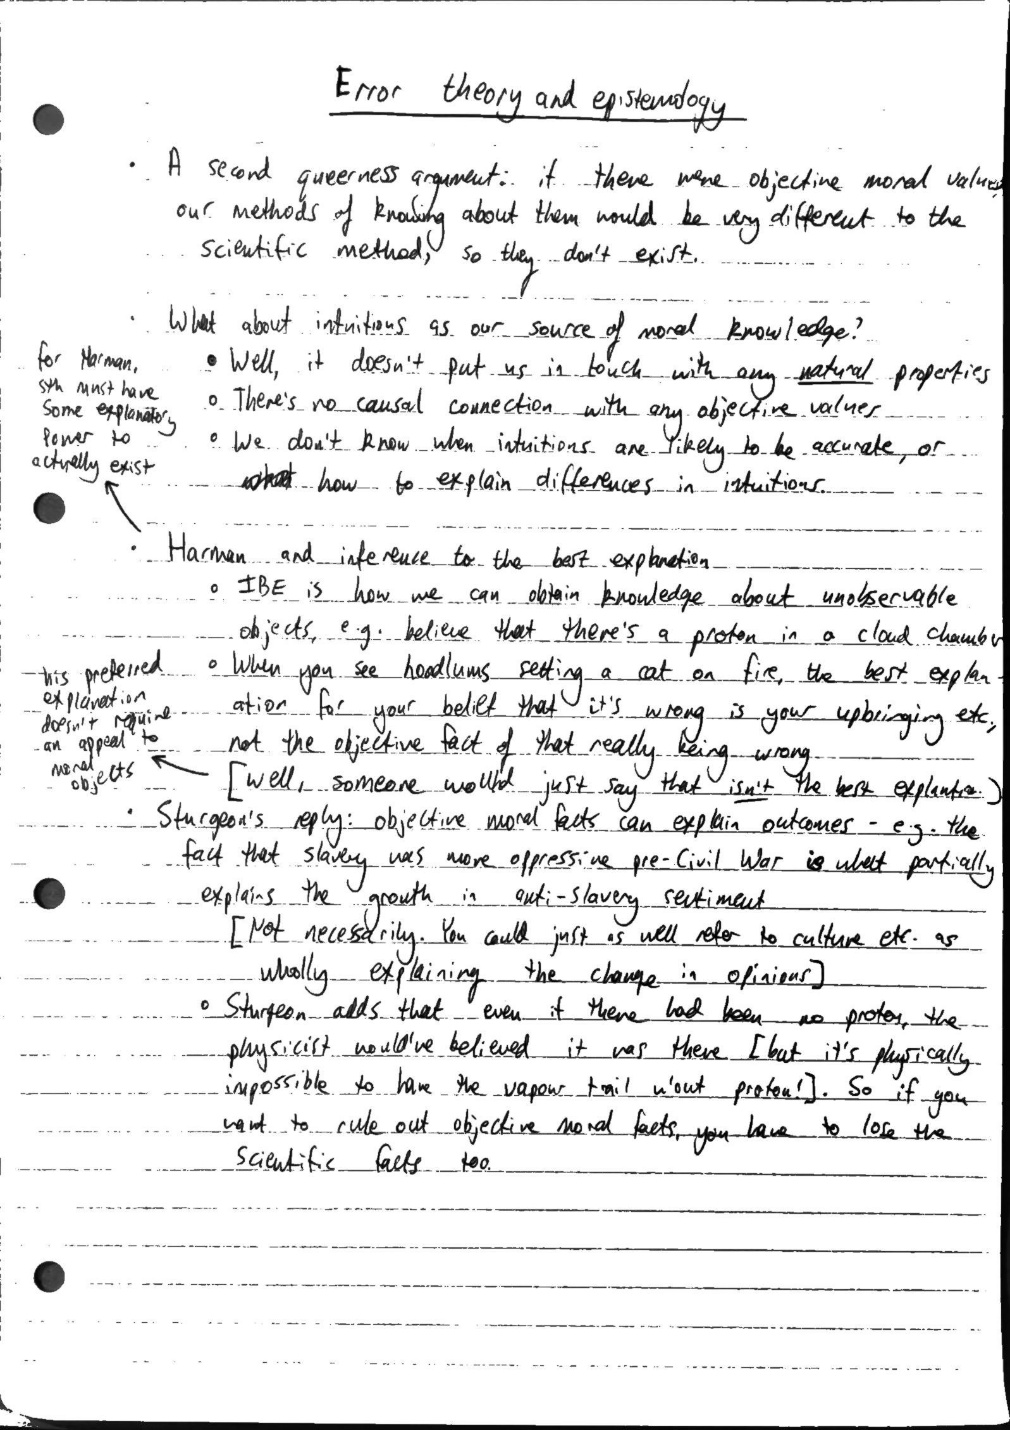 Error theory and epistemology
• A second queerness argument: if there were objective moral values
our methods of knowing about them would be very different to the
scientific method, so they don't exist.
• What about intuitions as our source of moral knowledge?
• Well, it doesn't put us in touch with any natural properties
o There's no causal connection with any objective values
o We don't know when intuitions are likely to be accurate, or
how to explain differences in intuitions.
for Harman,
sth must have
some explanatory
power to
actually exist
• Harman and inference to the best explanation
o IBE is how we can obtain knowledge about unobservable
objects, e.g. believe that there's a proton in a cloud chamber
o When you see hoodlums setting a cat on fire, the best explan-
ation for your belief that it's wrong is your upbringing etc,
not the objective fact of that really being wrong
[Well, someone would just say that isn't the best explanation.]
his preferred
explanation
doesn't require
an appeal to
moral
objects
• Sturgeon's reply: objective moral facts can explain outcomes - e.g. the
fact that slavery was more oppressive pre-Civil War is what partially
explains the growth in anti-slavery sentiment
[Not necessarily. You could just as well refer to culture etc. as
wholly explaining the change in opinions]
o Sturgeon adds that even if there had been no proton, the
physicist would've believed it was there [but it's physically
impossible to have the vapour trail w'out proton!]. So if you
want to rule out objective moral facts, you have to lose the
scientific facts too.